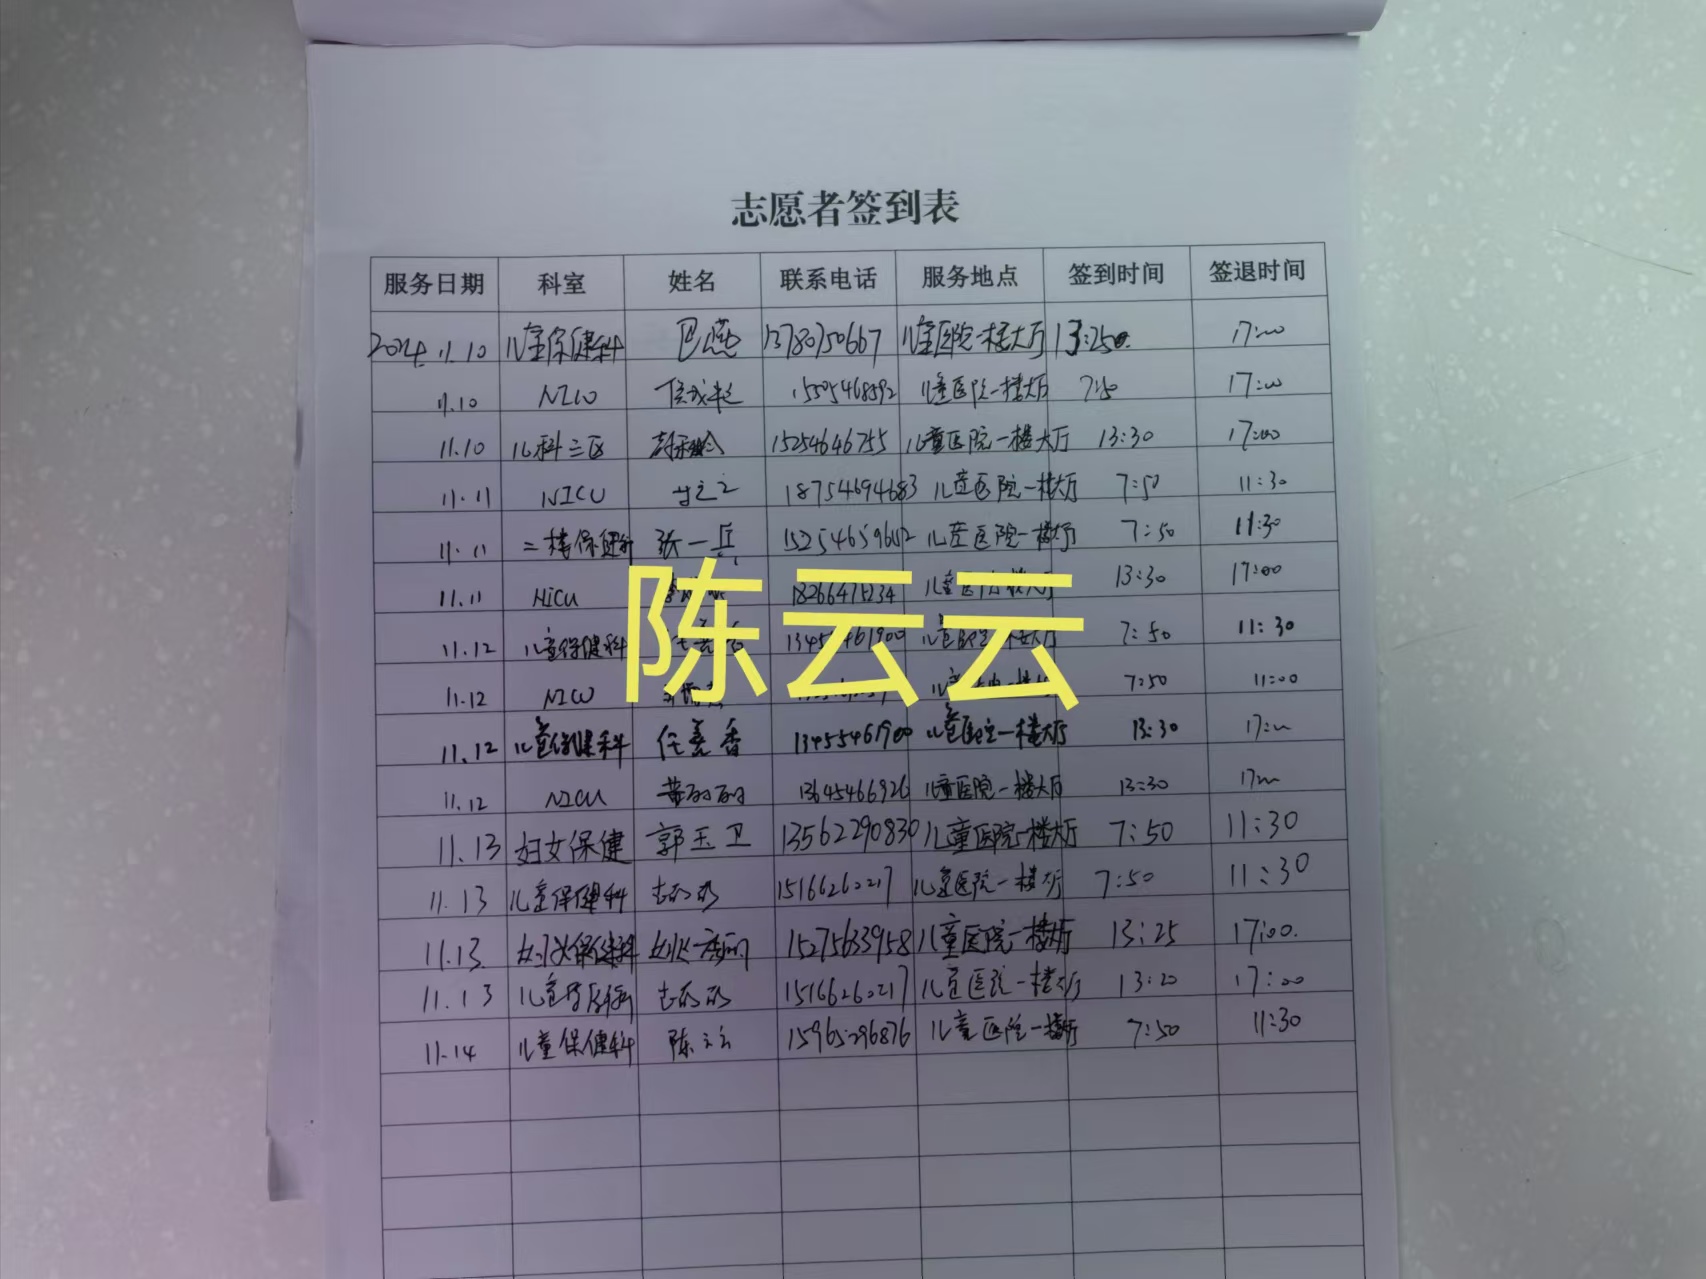 志愿者签到表
服务日期 科室 姓名 联系电话 服务地点 签到时间 签退时间
2024.11.10 儿童保健科 巴燕 13780750667 儿童医院一楼大厅 13:25 17:00
11.10 NICU 15505468592 儿童医院一楼大厅 7:50 17:00
11.10 儿科三区 15254646755 儿童医院一楼大厅 13:30 17:00
11.11 NICU 18754694683 儿童医院一楼大厅 7:50 11:30
11.11 张一兵 儿童医院一楼大厅 7:50 11:30
11.11 NICU 18266475234 13:30 17:00
陈云云
11.12 儿童保健科 7:50 11:30
11.12 NICU 7:50 11:00
11.12 儿童保健科 任美香 13455461900 儿童医院一楼大厅 13:30 17:00
11.12 NICU 黄丽丽 13645466926 儿童医院一楼大厅 13:30 17:00
11.13 妇女保健 郭玉卫 13562290830 儿童医院一楼大厅 7:50 11:30
11.13 儿童保健科 15166260217 儿童医院一楼大厅 7:50 11:30
11.13 15275633958 儿童医院一楼大厅 13:25 17:00.
11.13 15166260217 儿童医院一楼大厅 13:20 17:00
11.14 儿童保健科 陈云云 15965296876 儿童医院一楼大厅 7:50 11:30